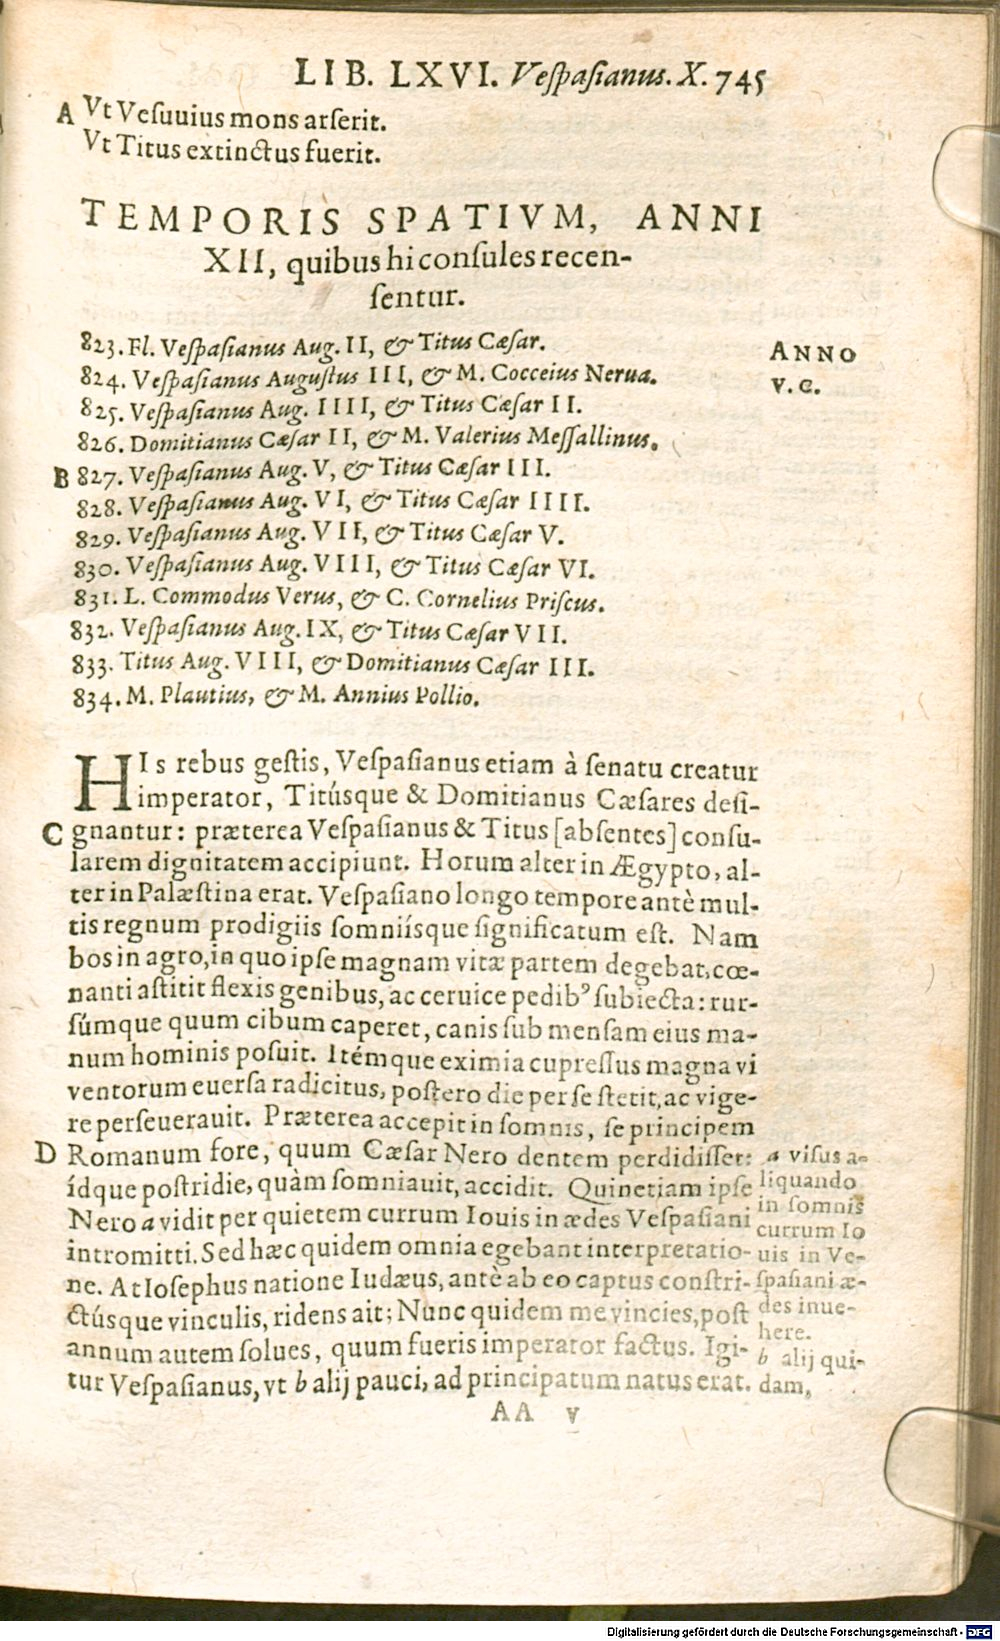 LIB. LXVI. Veſpaſianus. X. 745
A Vt Veſuuius mons arſerit.
Vt Titus extinctus fuerit.
TEMPORIS SPATIVM, ANNI
XII, quibus hi conſules recen-
ſentur.
ANNO
V. C.
823. Fl. Veſpaſianus Aug. II, & Titus Cæſar.
824. Veſpaſianus Auguſtus III, & M. Cocceius Nerua.
825. Veſpaſianus Aug. IIII, & Titus Cæſar II.
826. Domitianus Cæſar II, & M. Valerius Meſſallinus.
B 827. Veſpaſianus Aug. V, & Titus Cæſar III.
828. Veſpaſianus Aug. VI, & Titus Cæſar IIII.
829. Veſpaſianus Aug. VII, & Titus Cæſar V.
830. Veſpaſianus Aug. VIII, & Titus Cæſar VI.
831. L. Commodus Verus, & C. Cornelius Priſcus.
832. Veſpaſianus Aug. IX, & Titus Cæſar VII.
833. Titus Aug. VIII, & Domitianus Cæſar III.
834. M. Plautius, & M. Annius Pollio.
HIs rebus geſtis, Veſpaſianus etiam à ſenatu creatur
imperator, Titúsque & Domitianus Cæſares deſi-
C gnantur: præterea Veſpaſianus & Titus [abſentes] conſu-
larem dignitatem accipiunt. Horum alter in Ægypto, al-
ter in Palæſtina erat. Veſpaſiano longo tempore antè mul-
tis regnum prodigiis ſomniísque ſignificatum eſt. Nam
bos in agro, in quo ipſe magnam vitæ partem degebat, cœ-
nanti aſtitit flexis genibus, ac ceruice pedibꝰ ſubiecta: rur-
ſúmque quum cibum caperet, canis ſub menſam eius ma-
num hominis poſuit. Itémque eximia cupreſſus magna vi
ventorum euerſa radicitus, poſtero die per ſe ſtetit, ac vige-
re perſeuerauit. Præterea accepit in ſomnis, ſe principem
D Romanum fore, quum Cæſar Nero dentem perdidiſſet:
ídque poſtridie, quàm ſomniauit, accidit. Quinetiam ipſe
Nero a vidit per quietem currum Iouis in ædes Veſpaſiani
intromitti. Sed hæc quidem omnia egebant interpretatio-
ne. At Ioſephus natione Iudæus, antè ab eo captus conſtri-
ctúsque vinculis, ridens ait; Nunc quidem me vincies, poſt
annum autem ſolues, quum fueris imperator factus. Igi-
tur Veſpaſianus, vt b alij pauci, ad principatum natus erat.
a viſus a-
liquando
in ſomnis
currum Io
uis in Ve-
ſpaſiani æ-
des inue-
here.
b alij qui-
dam,
AA v
Digitalisierung gefördert durch die Deutsche Forschungsgemeinschaft - DFG